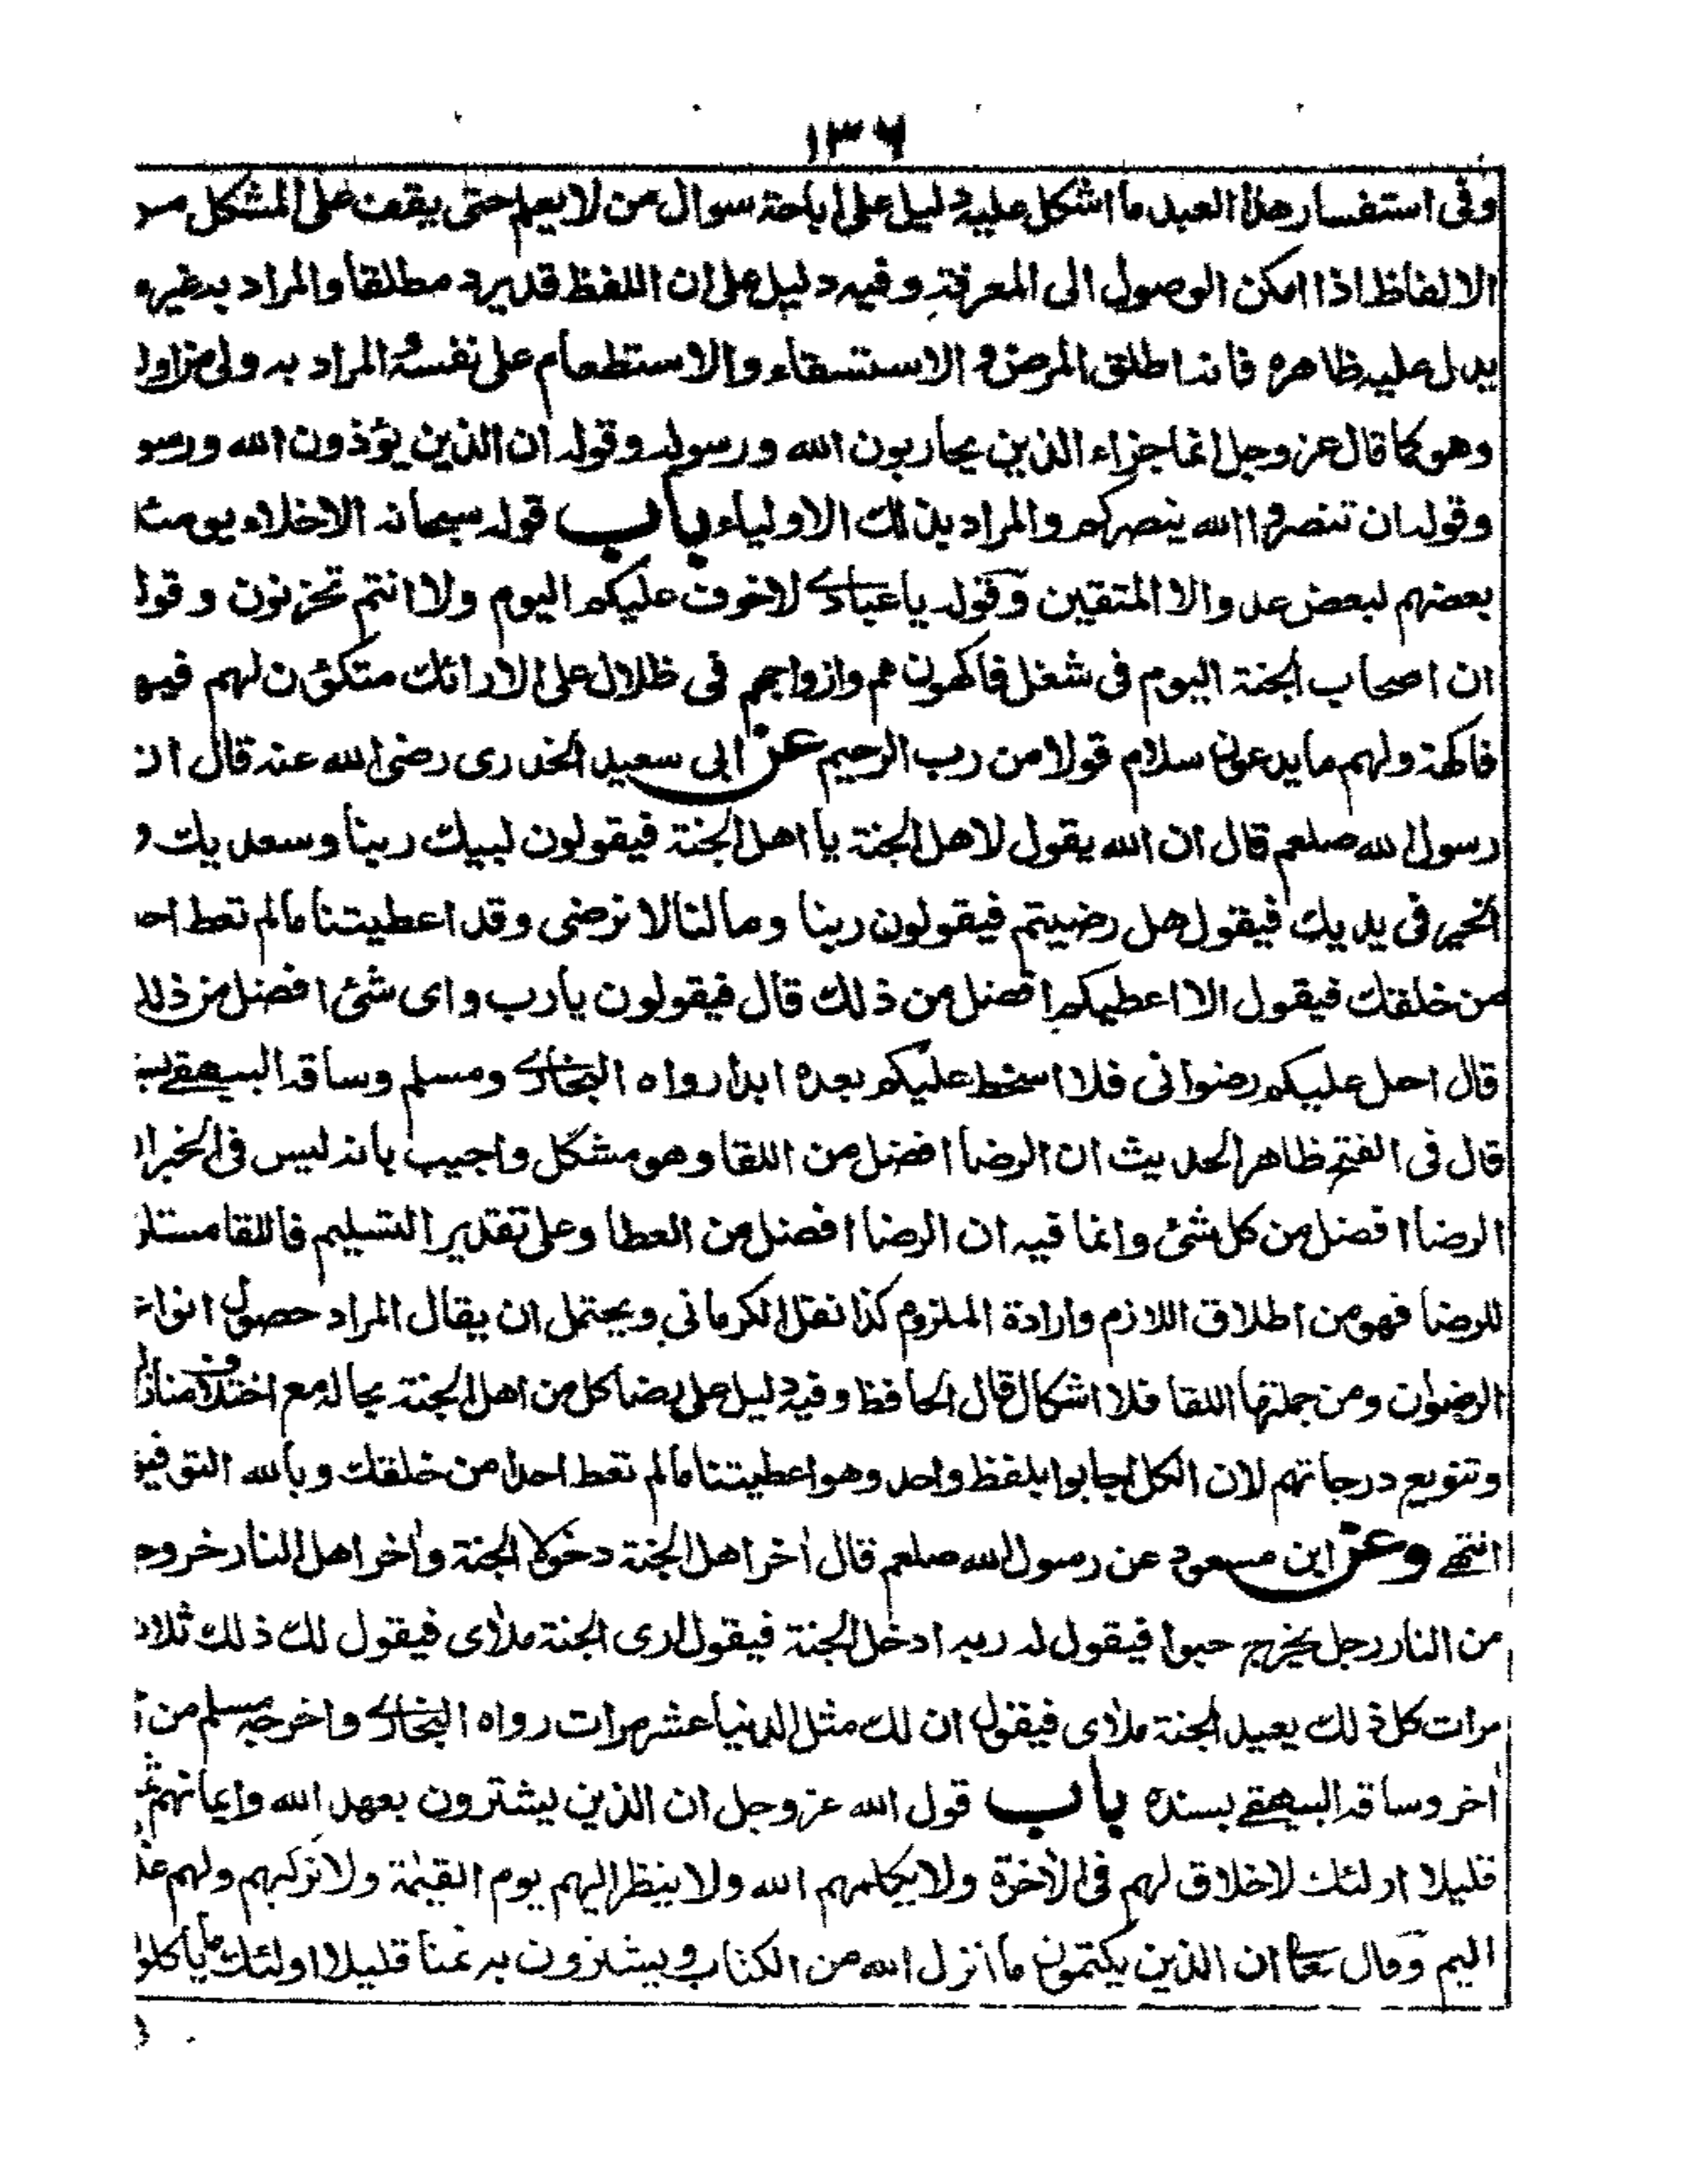 ١٣٦
وفى استفسار هذا العبد ما اشكل عليه دليل على اباحة سوال من لا يعلم حتى يقف على المشكل من
الالفاظ اذا امكن الوصول الى المعرفة وفيه دليل على ان اللفظ قد يرد مطلقا والمراد به غيره
يدل عليه ظاهره فانه اطلق المرض و الاستسقاء والاستطعام على نفسه والمراد به ولى من اوليا
وهو كما قال عز وجل انما جزاء الذين يحاربون الله ورسوله وقوله ان الذين يؤذون الله ورسو
وقوله ان تنصروا الله ينصركم والمراد بذلك الاولياء باب قوله سبحانه الاخلاء يومئذ
بعضهم لبعض عدو الا المتقين وقوله يا عبادى لا خوف عليكم اليوم ولا انتم تحزنون وقوله
ان اصحاب الجنة اليوم فى شغل فاكهون هم وازواجهم فى ظلال على الارائك متكئون لهم فيها
فاكهة ولهم ما يدعون سلام قولا من رب الرحيم عن ابى سعيد الخدرى رضى الله عنه قال ان
رسول الله صلعم قال ان الله يقول لاهل الجنة يا اهل الجنة فيقولون لبيك ربنا وسعديك و
الخير فى يديك فيقول هل رضيتم فيقولون ربنا وما لنا لا نرضى وقد اعطيتنا ما لم تعط احد
من خلقك فيقول الا اعطيكم افضل من ذلك قال فيقولون يا رب واى شئ افضل من ذلك
قال احل عليكم رضوانى فلا اسخط عليكم بعده ابدا رواه البخارى ومسلم وساقه البيهقى بس
قال فى الفتح ظاهر الحديث ان الرضا افضل من اللقا وهو مشكل واجيب بانه ليس فى الخبر ان
الرضا افضل من كل شئ وانما فيه ان الرضا افضل من العطا وعلى تقدير التسليم فاللقا مستلز
للرضا فهو من اطلاق اللازم وارادة الملزوم كذا نقل الكرمانى ويحتمل ان يقال المراد حصول انواع
الرضوان ومن جملتها اللقا فلا اشكال قال الحافظ وفيه دليل على رضا كل من اهل الجنة بحاله مع اختلاف منازل
وتنويع درجاتهم لان الكل اجابوا بلفظ واحد وهو اعطيتنا ما لم تعط احدا من خلقك وبالله التوفيق
انتهى وعن ابن مسعود عن رسول الله صلعم قال أخر اهل الجنة دخولا الجنة وأخر اهل النار خروجا
من النار رجل يخرج حبوا فيقول له ربه ادخل الجنة فيقول ارى الجنة ملأى فيقول لك ذلك ثلاث
مرات كل ذلك يعيد الجنة ملأى فيقول ان لك مثل الدنيا عشر مرات رواه البخارى واخرجه مسلم من
أخر وساقه البيهقى بسنده باب قول الله عز وجل ان الذين يشترون بعهد الله وايمانهم ثمنا
قليلا اولئك لا خلاق لهم فى الأخرة ولا يكلمهم الله ولا ينظر اليهم يوم القيمة ولا يزكيهم ولهم عذ
اليم وقال تعا ان الذين يكتمون ما انزل الله من الكتاب ويشترون به ثمنا قليلا اولئك ما ياكلو